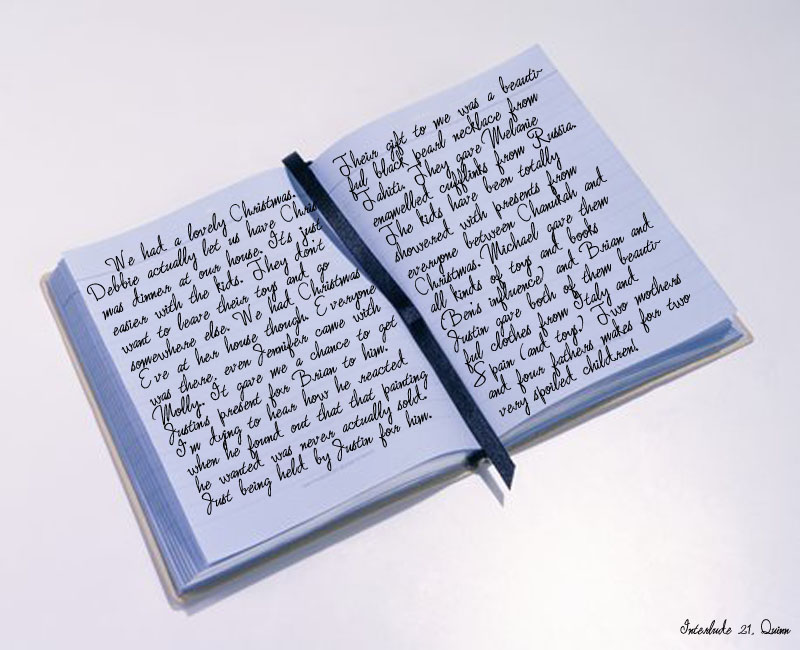 We had a lovely Christmas.
Debbie actually let us have Chris
mas dinner at our house. It's just
easier with the kids. They don't
want to leave their toys and go
somewhere else. We had Christmas
Eve at her house though. Everyone
was there, even Jennifer came with
Molly. It gave me a chance to get
Justin's present for Brian to him.
I'm dying to hear how he reacted
when he found out that that painting
he wanted was never actually sold.
Just being held by Justin for him.
Their gift to me was a beauti-
ful black pearl necklace from
Tahiti. They gave Melanie
enamelled cufflinks from Russia.
The kids have been totally
showered with presents from
everyone between Chanukah and
Christmas. Michael gave them
all kinds of toys and books
(Ben's influence) and Brian and
Justin gave both of them beauti-
ful clothes from Italy and
Spain (and toys). Two mothers
and four fathers makes for two
very spoiled children!
Interlude 21, Quinn